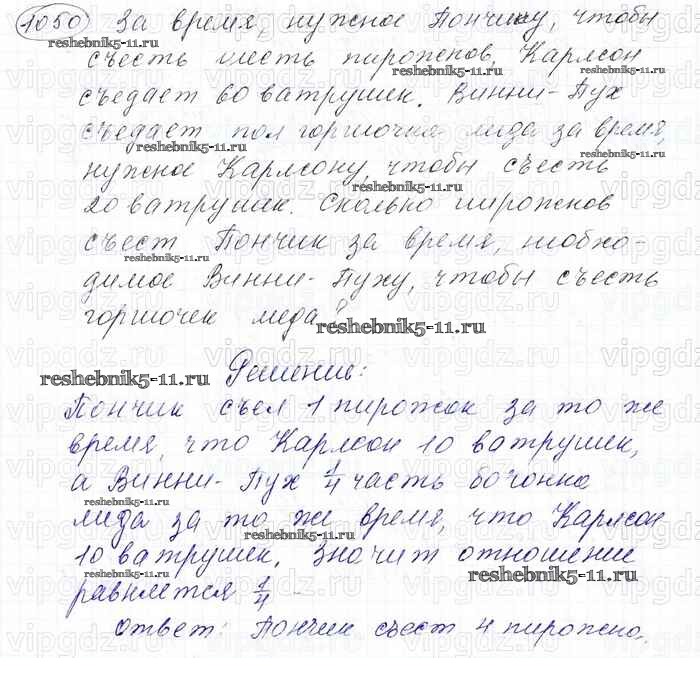 1050) За время, нужное Пончику, чтобы
съесть шесть пирожков, Карлсон
съедает 60 ватрушек. Винни-Пух
съедает пол горшочка меда за время,
нужное Карлсону, чтобы съесть
20 ватрушек. Сколько пирожков
съест Пончик за время, необхо-
димое Винни-Пуху, чтобы съесть
горшочек меда?
Решение:
Пончик съел 1 пирожок за то же
время, что Карлсон 10 ватрушек,
а Винни-Пух 1/4 часть бочонка
меда за то же время, что Карлсон
10 ватрушек. Значит отношение
равняется 1/4
Ответ: Пончик съест 4 пирожка.
reshebnik5-11.ru
vipgdz.ru